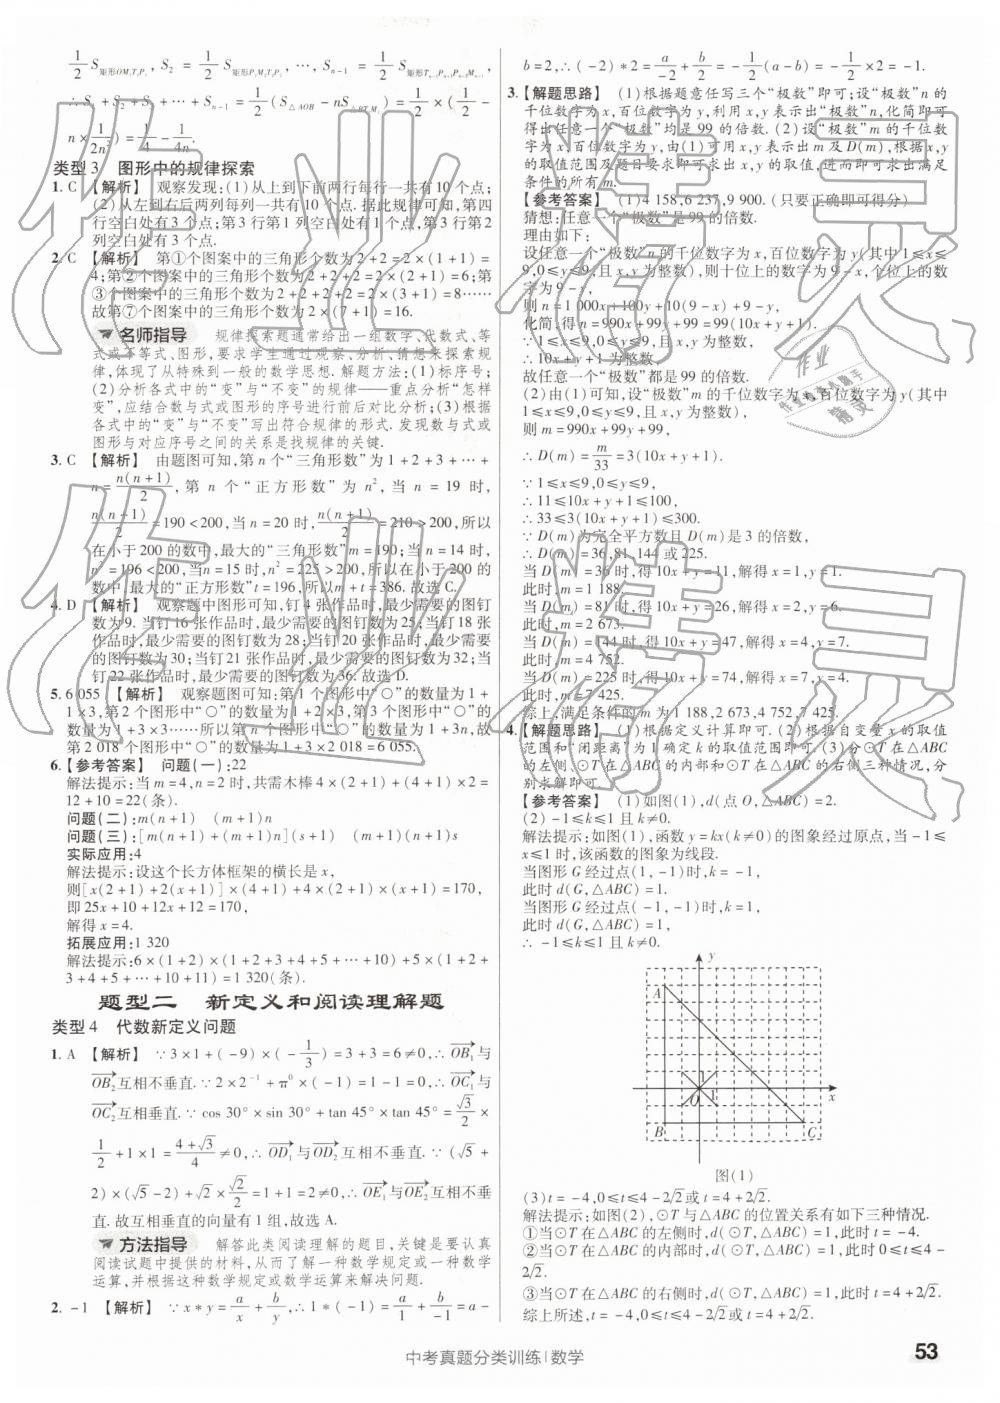 1/2 S矩形OM₁T₁P₁, S₂ = 1/2 S矩形P₁M₂T₂P₂, ⋯, Sₙ₋₁ = 1/2 S矩形Tₙ₋₂Pₙ₋₂Pₙ₋₁Mₙ₋₁,
∴S₁+S₂+S₃+⋯+Sₙ₋₁=1/2(S△AOB-nS△)=1/2×(1/2-
n×1/2n²)=1/4-1/4n.
类型3 图形中的规律探索
1. C 【解析】 观察发现:(1)从上到下前两行每行一共有10个点;
(2)从左到右后两列每列一共有10个点.据此规律可知,第四
行空白处有3个点;第3行第1列空白处有1个点,第3行第2
列空白处有3个点.
2. C 【解析】 第①个图案中的三角形个数为2+2=2×(1+1)=
4;第②个图案中的三角形个数为2+2+2=2×(2+1)=6;第
③个图案中的三角形个数为2+2+2+2=2×(3+1)=8⋯⋯
故第⑦个图案中的三角形个数为2×(7+1)=16.
名师指导 规律探索题通常给出一组数字、代数式、等
式或不等式、图形,要求学生通过观察、分析、猜想来探索规
律,体现了从特殊到一般的数学思想.解题方法:(1)标序号;
(2)分析各式中的“变”与“不变”的规律——重点分析“怎样
变”,应结合数与式或图形的序号进行前后对比分析;(3)根据
各式中的“变”与“不变”写出符合规律的形式.发现数与式或
图形与对应序号之间的关系是找规律的关键.
3. C 【解析】 由题图可知,第n个“三角形数”为1+2+3+⋯+
n=n(n+1)/2,第n个“正方形数”为n²,当n=19时,
n(n+1)/2=190<200,当n=20时,n(n+1)/2=210>200,所以
在小于200的数中,最大的“三角形数”m=190;当n=14时,
n²=196<200,当n=15时,n²=225>200,所以在小于200的
数中,最大的“正方形数”t=196,所以m+t=386.故选C.
4. D 【解析】 观察题中图形可知,钉4张作品时,最少需要的图钉
数为9.当钉16张作品时,最少需要的图钉数为25;当钉18张
作品时,最少需要的图钉数为28;当钉20张作品时,最少需要的
图钉数为30;当钉21张作品时,最少需要的图钉数为32;当
钉22张作品时,最少需要的图钉数为36.故选D.
5. 6 055 【解析】 观察题图可知:第1个图形中“○”的数量为1+
1×3,第2个图形中“○”的数量为1+2×3,第3个图形中“○”的
数量为1+3×3⋯⋯所以第n个图形中“○”的数量为1+3n,故
第2 018个图形中“○”的数量为1+3×2 018=6 055.
6.【参考答案】 问题(一):22
解法提示:当m=4,n=2时,共需木棒4×(2+1)+(4+1)×2=
12+10=22(条).
问题(二):m(n+1) (m+1)n
问题(三):[m(n+1)+(m+1)n](s+1) (m+1)(n+1)s
实际应用:4
解法提示:设这个长方体框架的横长是x,
则[x(2+1)+2(x+1)]×(4+1)+4×(2+1)×(x+1)=170,
即25x+10+12x+12=170,
解得x=4.
拓展应用:1 320
解法提示:6×(1+2)×(1+2+3+4+5+⋯+10)+5×(1+2+
3+4+5+⋯+10+11)=1 320(条).
题型二 新定义和阅读理解题
类型4 代数新定义问题
1. A 【解析】 ∵3×1+(-9)×(-1/3)=3+3=6≠0,∴OB₁与
OB₂互相不垂直.∵2×2⁻¹+π⁰×(-1)=1-1=0,∴OC₁与
OC₂互相垂直.∵cos 30°×sin 30°+tan 45°×tan 45°=√3/2×
1/2+1×1=(4+√3)/4≠0,∴OD₁与OD₂互相不垂直.∵(√5+
2)×(√5-2)+√2×√2/2=1+1=2≠0,∴OE₁与OE₂互相不垂
直.故互相垂直的向量有1组,故选A.
方法指导 解答此类阅读理解的题目,关键是要认真
阅读试题中提供的材料,从而了解一种数学规定或一种数学
运算,并根据这种数学规定或数学运算来解决问题.
2. -1 【解析】 ∵x*y=a/x+b/y,∴1*(-1)=a/1+b/-1=a-
b=2,∴(-2)*2=a/-2+b/2=-1/2(a-b)=-1/2×2=-1.
3.【解题思路】 (1)根据题意任写三个“极数”即可;设“极数”n的
千位数字为x,百位数字为y,利用x,y表示出“极数”n,化简即可
得出任意一个“极数”均是99的倍数.(2)设“极数”m的千位数
字为x,百位数字为y,由(1)可用x,y表示出m及D(m),根据x,y
的取值范围及题目要求即可求出x,y的取值,进而即可求出满足
条件的所有m.
【参考答案】 (1)4 158,6 237,9 900.(只要正确即可得分)
猜想:任意一个“极数”是99的倍数.
理由如下:
设任意一个“极数”n的千位数字为x,百位数字为y(其中1≤x≤
9,0≤y≤9,且x,y为整数),则十位上的数字为9-x,个位上的数
字为9-y,
则n=1 000x+100y+10(9-x)+9-y,
化简,得n=990x+99y+99=99(10x+y+1).
∵1≤x≤9,0≤y≤9,且x,y为整数,
∴10x+y+1为整数,
故任意一个“极数”都是99的倍数.
(2)由(1)可知,设“极数”m的千位数字为x,百位数字为y(其中
1≤x≤9,0≤y≤9,且x,y为整数),
则m=990x+99y+99,
∴D(m)=m/33=3(10x+y+1).
∵1≤x≤9,0≤y≤9,
∴11≤10x+y+1≤100,
∴33≤3(10x+y+1)≤300.
∵D(m)为完全平方数且D(m)是3的倍数,
∴D(m)=36,81,144或225.
当D(m)=36时,得10x+y=11,解得x=1,y=1.
此时,m=1 188.
当D(m)=81时,得10x+y=26,解得x=2,y=6.
此时,m=2 673.
当D(m)=144时,得10x+y=47,解得x=4,y=7.
此时,m=4 752.
当D(m)=225时,得10x+y=74,解得x=7,y=4.
此时,m=7 425.
综上,满足条件的m为1 188,2 673,4 752,7 425.
4.【解题思路】 (1)根据定义计算即可.(2)根据自变量x的取值
范围和“闭距离”为1确定k的取值范围即可.(3)分⊙T在△ABC
的左侧、⊙T在△ABC的内部和⊙T在△ABC的右侧三种情况,分
别求解即可.
【参考答案】 (1)如图(1),d(点O,△ABC)=2.
(2)-1≤k≤1且k≠0.
解法提示:如图(1),函数y=kx(k≠0)的图象经过原点,当-1≤
x≤1时,该函数的图象为线段.
当图形G经过点(1,-1)时,k=-1,
此时d(G,△ABC)=1.
当图形G经过点(-1,-1)时,k=1,
此时d(G,△ABC)=1,
∴-1≤k≤1且k≠0.
y
A
1
O
1
x
B
C
图(1)
(3)t=-4,0≤t≤4-2√2或t=4+2√2.
解法提示:如图(2),⊙T与△ABC的位置关系有如下三种情况.
①当⊙T在△ABC的左侧时,d(⊙T,△ABC)=1,此时t=-4.
②当⊙T在△ABC的内部时,d(⊙T,△ABC)=1,此时0≤t≤4-
2√2.
③当⊙T在△ABC的右侧时,d(⊙T,△ABC)=1,此时t=4+2√2.
综上所述,t=-4,0≤t≤4-2√2或t=4+2√2.
中考真题分类训练|数学
53
作业精灵
作业精灵
作业精灵